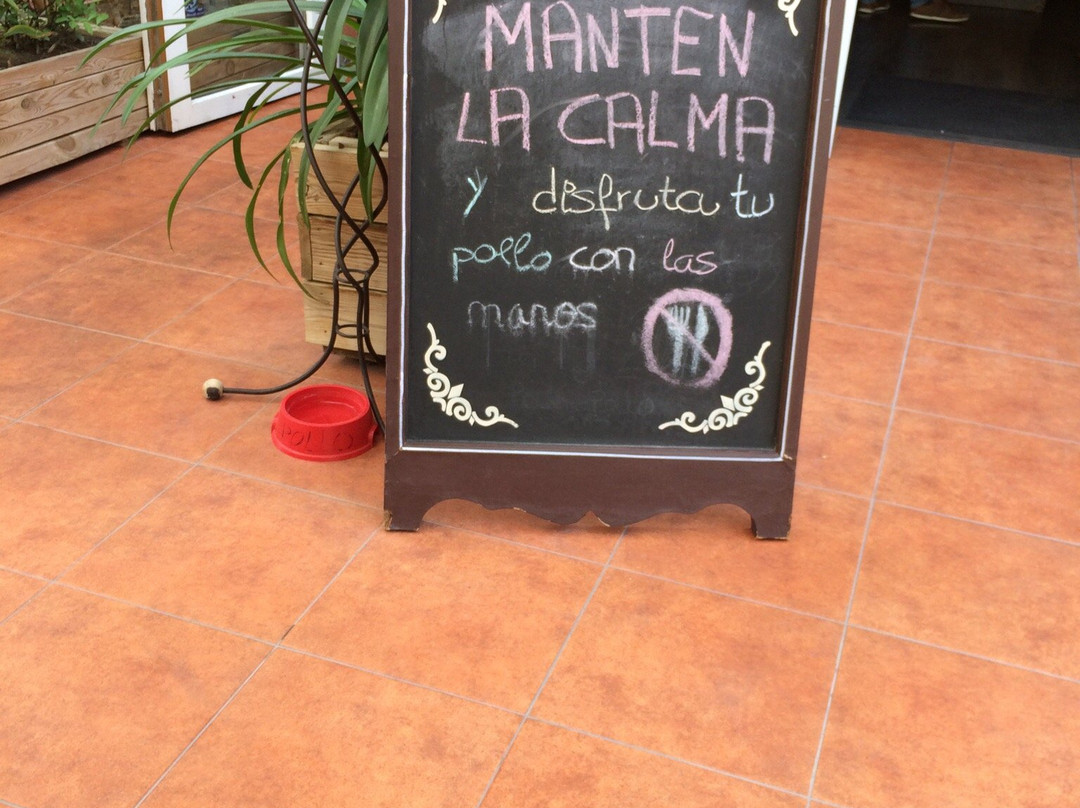 MANTEN
LA CALMA
y disfruta tu
pollo con las
manos
POLLO